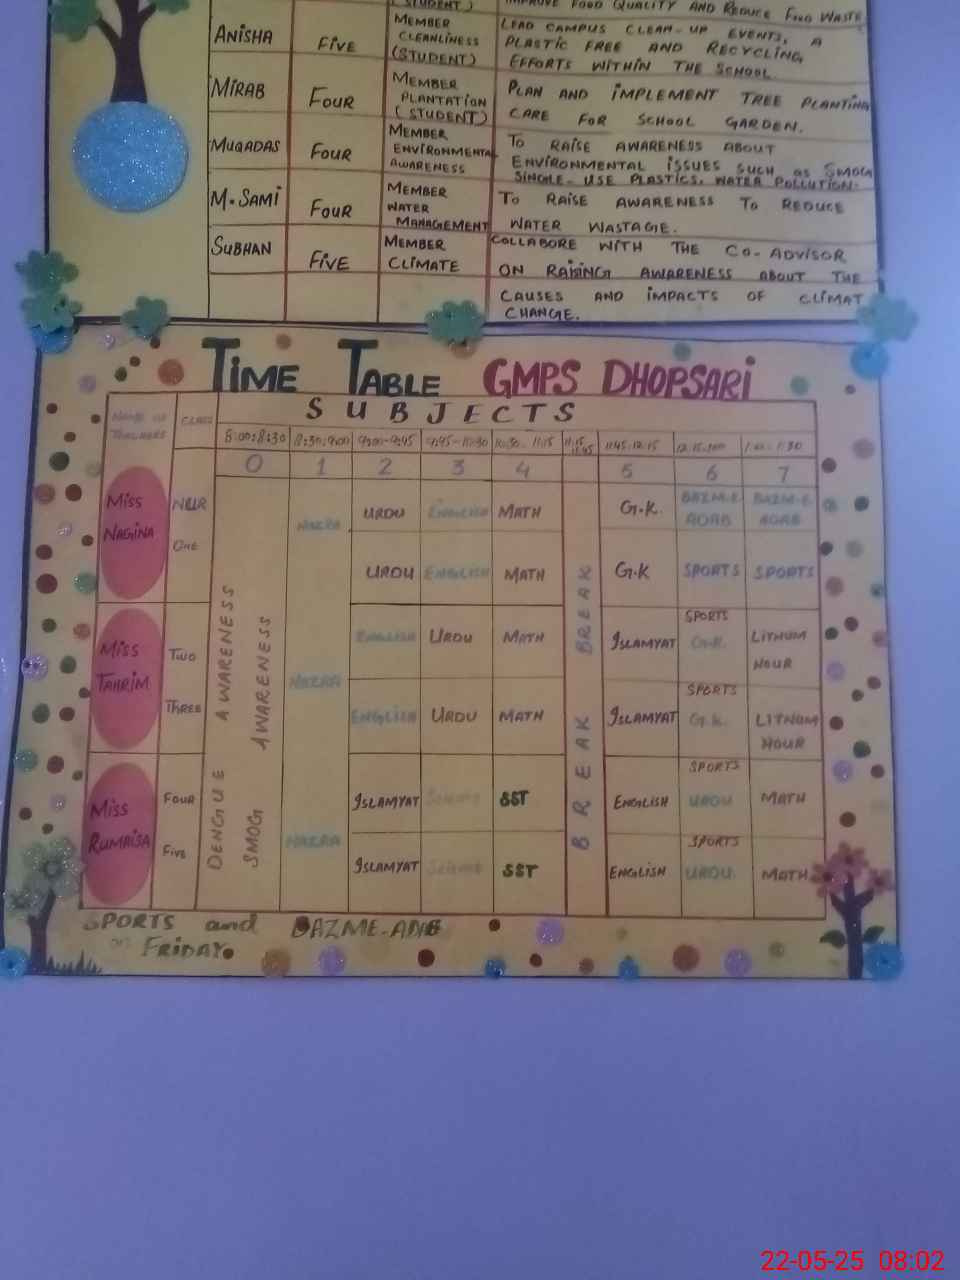 (STUDENT) IMPROVE FOOD QUALITY AND REDUCE FOOD WASTE
ANISHA FIVE MEMBER CLEANLINESS (STUDENT) LEAD CAMPUS CLEAN-UP EVENTS, A
PLASTIC FREE AND RECYCLING
EFFORTS WITHIN THE SCHOOL
MIRAB FOUR MEMBER PLANTATION (STUDENT) PLAN AND IMPLEMENT TREE PLANTING
CARE FOR SCHOOL GARDEN.
MUQADAS FOUR MEMBER ENVIRONMENTAL AWARENESS TO RAISE AWARENESS ABOUT
ENVIRONMENTAL ISSUES SUCH as SMOG
SINGLE-USE PLASTICS, WATER POLLUTION.
M.SAMI FOUR MEMBER WATER MANAGEMENT TO RAISE AWARENESS TO REDUCE
WATER WASTAGE.
SUBHAN FIVE MEMBER CLIMATE COLLABORE WITH THE CO-ADVISOR
ON RAISING AWARENESS ABOUT THE
CAUSES AND IMPACTS OF CLIMAT
CHANGE.
TIME TABLE GMPS DHOPSARI
NAME OF TEACHERS CLASS SUBJECTS
8:00:8:30 8:30:9:00 9:00-9:45 9:45-10:30 10:30-11:15 11:15 11:45 11:45-12:15 12:15-1:00 1:00-1:30
0 1 2 3 4 5 6 7
MISS NAGINA NAZRA URDU ENGLISH MATH G.K. BAZM-E ADAB BAZM-E ADAB
ONE URDU ENGLISH MATH G.K SPORTS SPORTS
MISS TAHRIM TWO NAZRA ENGLISH URDU MATH ISLAMYAT SPORTS G.K. LITNUM HOUR
THREE ENGLISH URDU MATH ISLAMYAT SPORTS G.K. LITNUM HOUR
MISS RUMAISA FOUR NAZRA ISLAMYAT Science SST ENGLISH SPORTS URDU MATH
FIVE ISLAMYAT Science SST ENGLISH SPORTS URDU MATH
DENGUE AWARENESS
SMOG AWARENESS
BREAK BREAK
SPORTS and BAZME-ADAB
on FRIDAY.
22-05-25 08:02